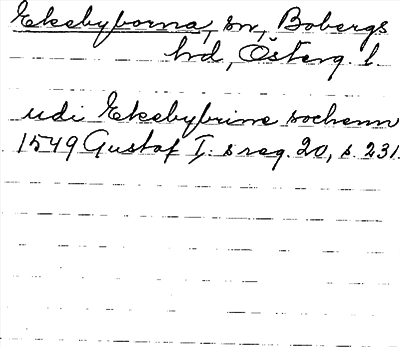 Ekebyborna, sn, Bobergs
hd, Österg. l.
udi Ekebybrine sochenn
1549 Gustaf I:s reg. 20, s. 231.